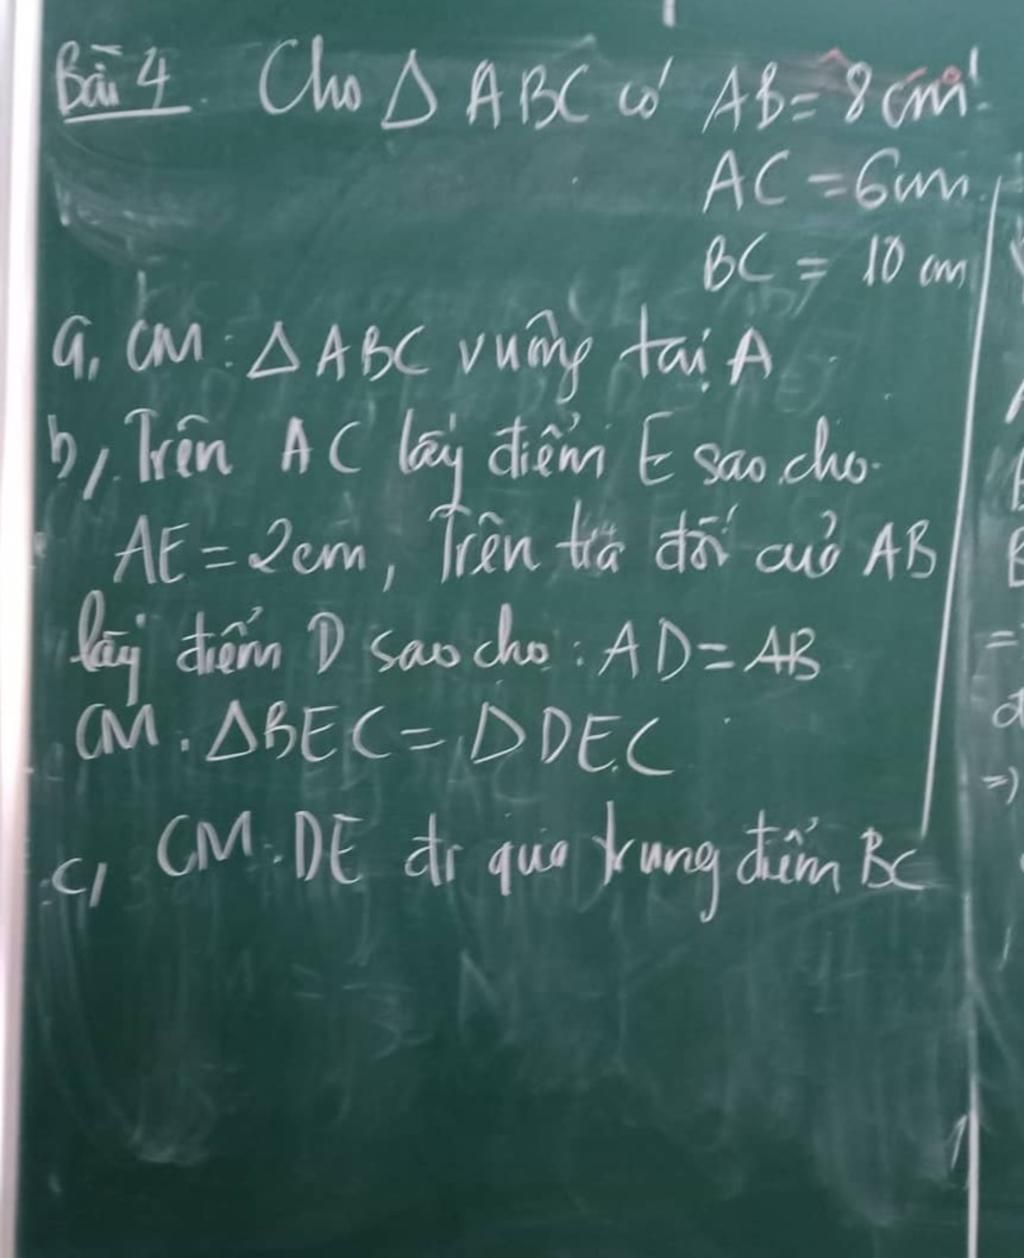 Bài 4. Cho △ ABC có AB = 8 cm
AC = 6 cm
BC = 10 cm
a, CM: △ ABC vuông tại A
b, Trên AC lấy điểm E sao cho
AE = 2cm, Trên tia đối của AB
lấy điểm D sao cho: AD = AB
CM. △BEC = △DEC
c, CM: DE đi qua trung điểm BC